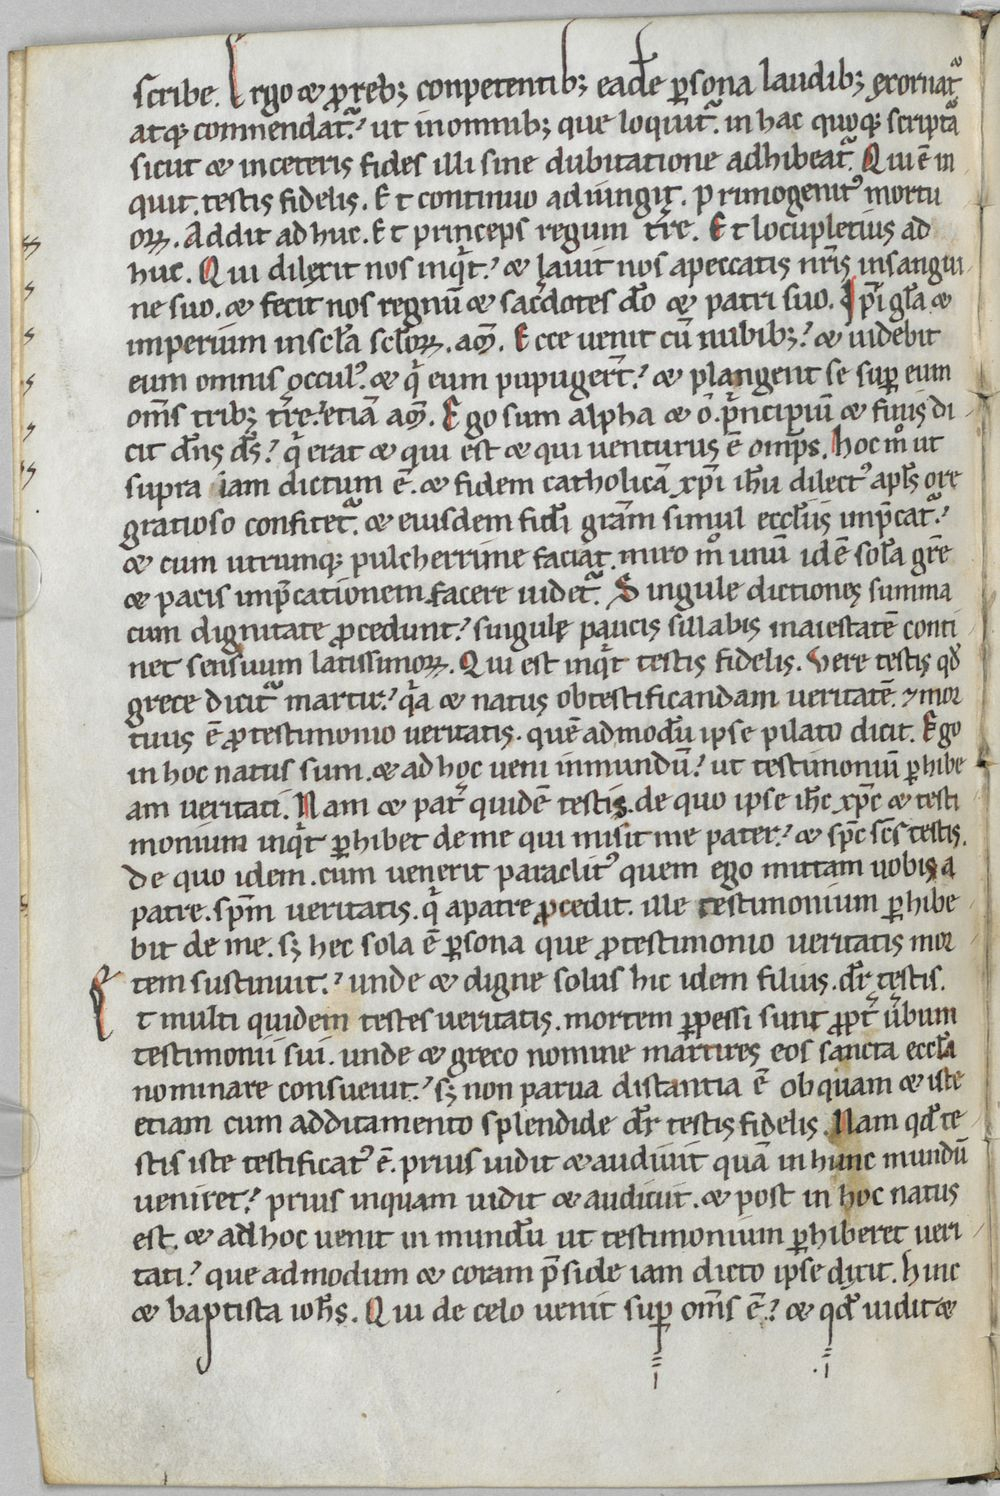 scribe. Ergo ⁊ ꝓ reb; conpetentib; eadē ꝑsona laudib; exornat᷑
atq; commendat᷑. ut in omnib; que loquit᷑. in hac quoq; scriptā
sicut ⁊ in ceteris fides illi sine dubitatione adhibeat᷑. Qui ē in
quit. testis fidelis. Et continuo adiungit. Primogenitꝰ mortu
oꝝ. Addit ad huc. Et princeps regum tr̄re. Et locupletius ad
huc. Qui dilexit nos inqͥt. ⁊ lauit nos a peccatis nr̄is in sangui
ne suo. ⁊ fecit nos regnū ⁊ sac̄dotes dō ⁊ patri suo. Ipi gl̄a ⁊
imperium in scl̄a scl̄oꝝ. am̄. Ecce uenit cū nubib;. ⁊ uidebit
eum omnis occulꝰ. ⁊ qͥ eum pupuger̄t. ⁊ plangent se suꝑ eum
om̄s trib; tr̄re. etiā am̄. Ego sum alpha ⁊ ō. pͥncipiū ⁊ finis di
cit dn̄s ds̄. qͥ erat ⁊ qui est ⁊ qui uenturus ē omp̄s. hoc mͦ ut
supra iam dictum ē. ⁊ fidem catholicā xp̄i ih̄u dilectꝰ apl̄s ore
gratioso confitet᷑. ⁊ eiusdem fidi gr̄am simul eccl̄iis imp̄cat᷑.
⁊ cum utrumq; pulcherrime faciat. miro mͦ unū idē sol̄a gr̄e
⁊ pacis imp̄cationem facere uidet᷑. Singule dictiones summa
cum dignitate ꝓcedunt. singulę paucis sillabis maiestatē conti
net sensuum latissimoꝝ. Qui est inqͥt testis fidelis. Vere testis qd̄
grece dicit᷑ martir. qͣa ⁊ natus ob testificandam ueritatē. ⁊ mor
tuus ē ꝓ testimonio ueritatis. quē ad modū ipse pilato dicit. Ego
in hoc natus sum. ⁊ ad hoc ueni in mundū. ut testimoniū ꝑhibe
am ueritati. Nam ⁊ pat̄ quidē testis. de quo ipse ih̄c xp̄c ⁊ testi
monium inqͥt ꝑhibet de me qui misit me pater. ⁊ sp̄c sc̄s testis.
de quo idem. cum uenerit paraclitꝰ quem ego mittam uobis a
patre. sp̄m ueritatis. qͥ a patre ꝓcedit. ille testimonium ꝑhibe
bit de me. s; hec sola ē ꝑsona que ꝓ testimonio ueritatis mor
tem sustinuit. unde ⁊ digne solus hic idem filius. dr̄ testis.
Et multi quidem testes ueritatis. mortem ꝑpessi sunt ꝓpt̄ uerbum
testimonii sui. unde ⁊ greco nomine martires eos sancta eccl̄a
nominare consueuit. s; non parua distantia ē ob quam ⁊ iste
etiam cum additamento splendide dr̄ testis fidelis. Nam qd̄ te
stis iste testificatꝰ ē. prius uidit ⁊ audiuit quā in hunc mundū
ueniret. prius inquam uidit ⁊ audiuit. ⁊ post in hoc natus
est. ⁊ ad hoc uenit in mundū ut testimonium ꝑhiberet ueri
tati. que ad modum ⁊ coram p̄side iam dicto ipse dicit. hinc
⁊ baptista ioh̄s. Qui de celo uenit suꝑ om̄s ē. ⁊ qd̄ uidit ⁊